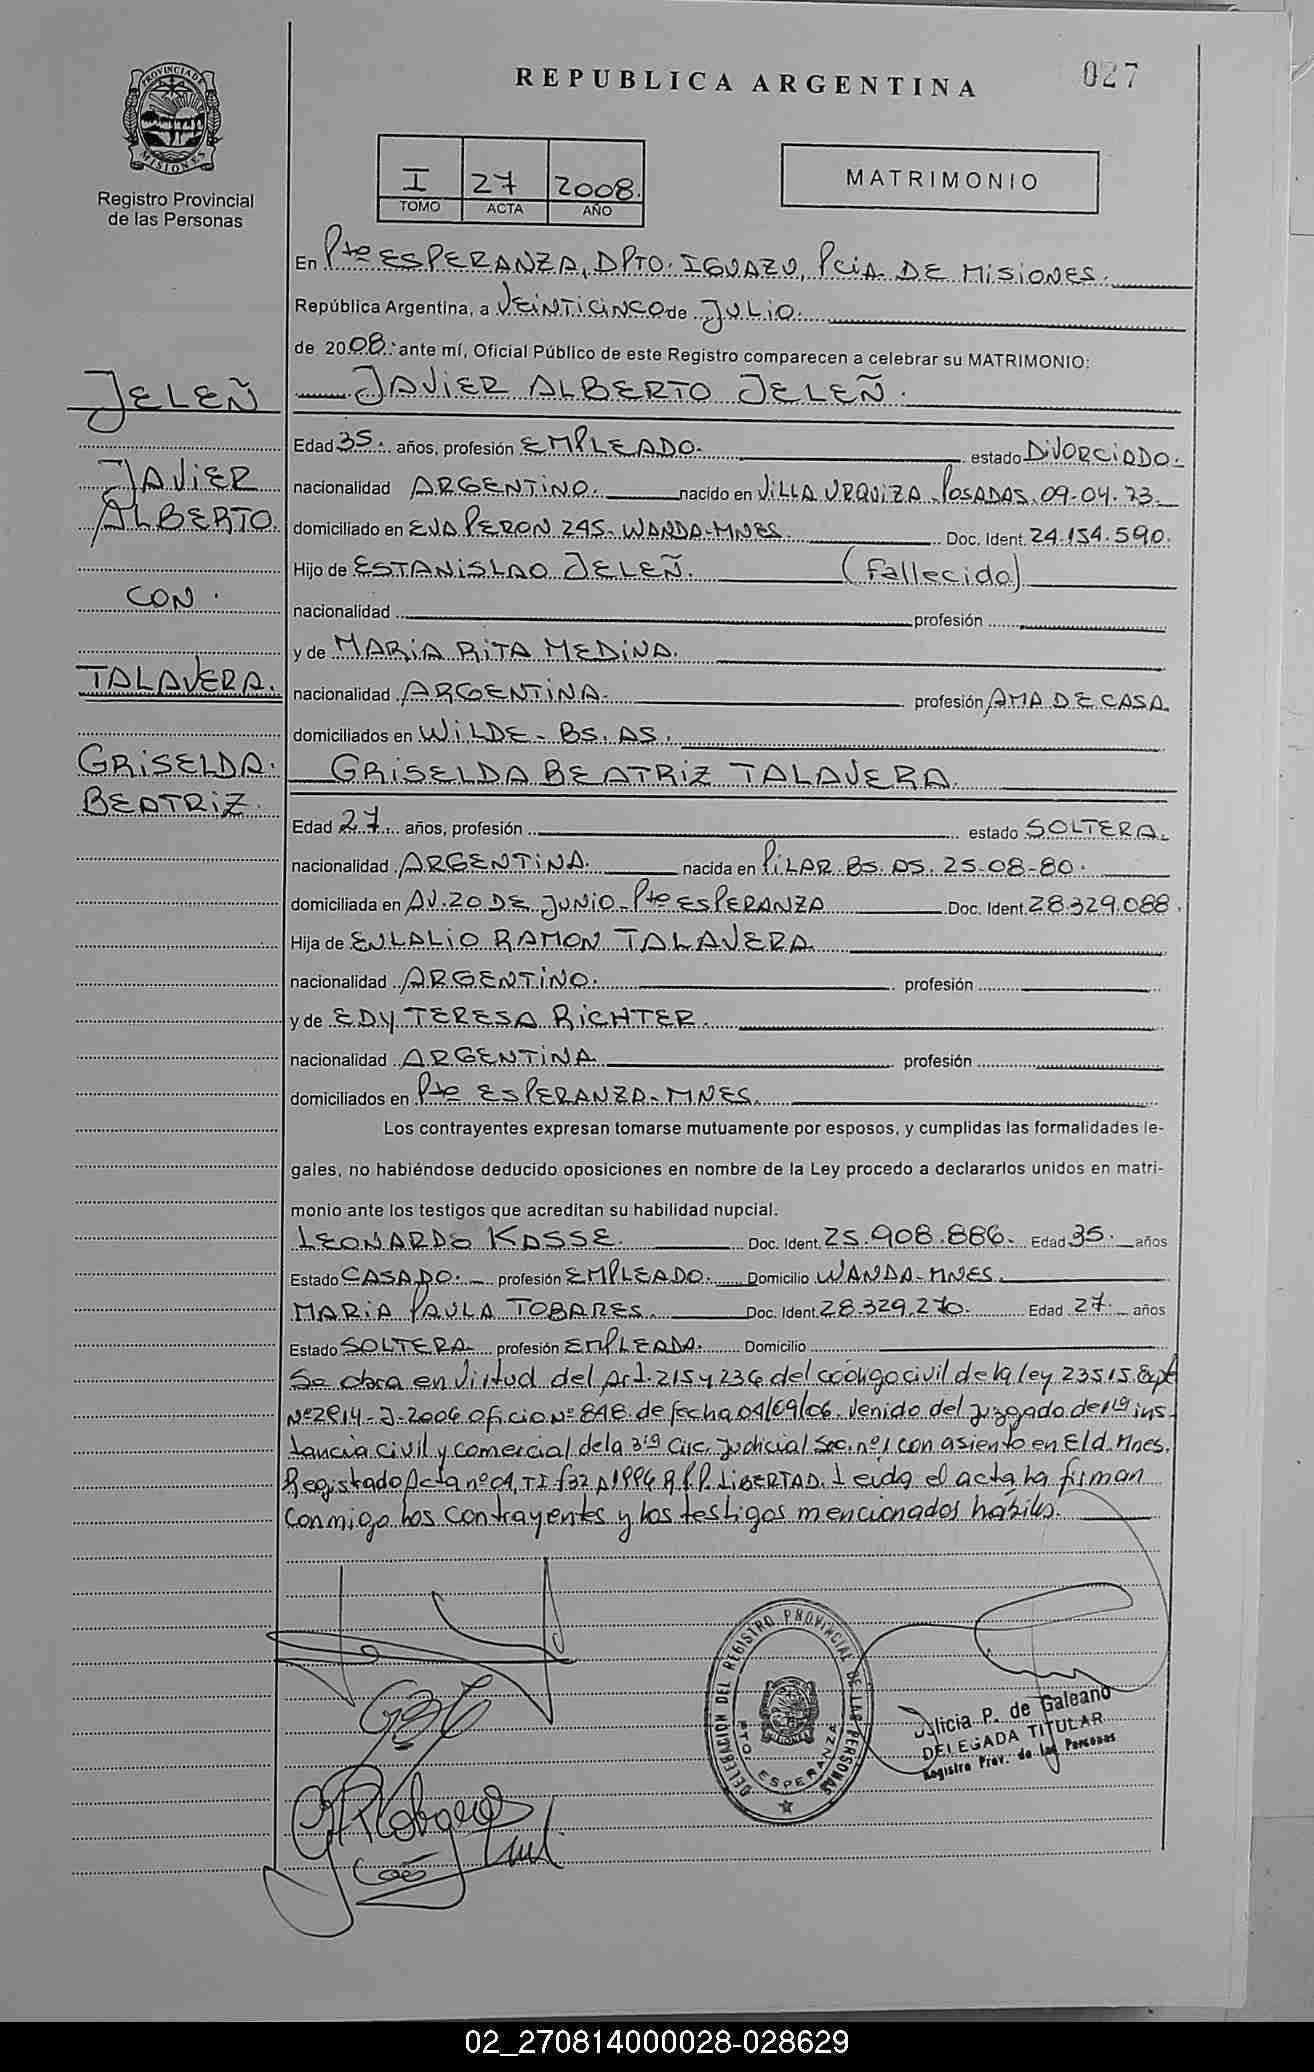 REPUBLICA ARGENTINA
027
PROVINCIA DE MISIONES
Registro Provincial
de las Personas
I 27 2008.
TOMO ACTA AÑO
MATRIMONIO
En Pto ESPERANZA, DPTO. IGUAZU, PCIA DE MISIONES.
República Argentina, a VEINTICINCO de JULIO.
de 2008. ante mí, Oficial Público de este Registro comparecen a celebrar su MATRIMONIO:
JELEÑ
JAVIER
ALBERTO
CON.
TALAVERA.
GRISELDA.
BEATRIZ.
JAVIER ALBERTO JELEÑ.
Edad 35. años, profesión EMPLEADO. estado DIVORCIADO.
nacionalidad ARGENTINO. nacido en VILLA URQUIZA. POSADAS. 09-04-73.
domiciliado en EVA PERON 245- WANDA-MNES. Doc. Ident. 24.154.590.
Hijo de ESTANISLAO JELEÑ. (fallecido)
nacionalidad profesión
y de MARIA RITA MEDINA.
nacionalidad ARGENTINA. profesión AMA DE CASA.
domiciliados en WILDE- BS. AS.
GRISELDA BEATRIZ TALAVERA.
Edad 27. años, profesión estado SOLTERA.
nacionalidad ARGENTINA. nacida en PILAR. BS. AS. 25-08-80.
domiciliada en AV. 20 DE JUNIO- Pto ESPERANZA Doc. Ident. 28.329.088.
Hija de EULALIO RAMON TALAVERA.
nacionalidad ARGENTINO. profesión
y de EDY TERESA RICHTER.
nacionalidad ARGENTINA. profesión
domiciliados en Pto ESPERANZA- MNES.
Los contrayentes expresan tomarse mutuamente por esposos, y cumplidas las formalidades le-
gales, no habiéndose deducido oposiciones en nombre de la Ley procedo a declararlos unidos en matri-
monio ante los testigos que acreditan su habilidad nupcial.
LEONARDO KASSE. Doc. Ident. 25.908.886. Edad 35. años
Estado CASADO. profesión EMPLEADO. Domicilio WANDA-MNES.
MARIA PAULA TOBARES. Doc. Ident. 28.329.270. Edad 27. años
Estado SOLTERA profesión EMPLEADA. Domicilio
Se obra en virtud del Art. 215 y 236 del código civil de la ley 23515. Expte
Nº 2814-J-2006 oficio Nº 848. de fecha 04/09/06. venido del juzgado de 1ra ins
tancia civil y comercial de la 3ra Circ. Judicial Sec. nº1 con asiento en Eld. Mnes.
Registrado Acta nº 04, TI f32 A1996 LIBERTAD. Leida el acta la firman
conmigo los contrayentes y los testigos mencionados hábiles.
DELEGACION DEL REGISTRO PROVINCIAL DE LAS PERSONAS
PTO. ESPERANZA
MISIONES
Alicia P. de Galeano
DELEGADA TITULAR
Registro Prov. de las Personas
02_270814000028-028629